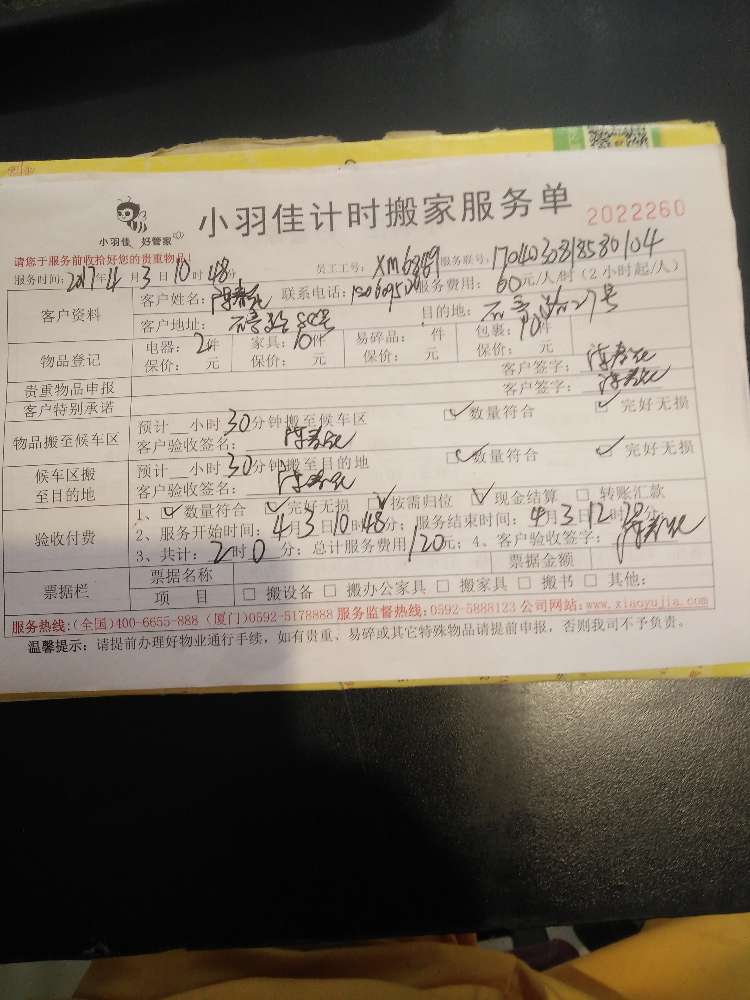 小羽佳 好管家
小羽佳计时搬家服务单 2022260
请您于服务前收拾好您的贵重物品!
服务时间:2017年4月3日10时48分 员工工号:XM6849 服务联号:17040308185830104
客户资料 客户姓名: 联系电话: 服务费用:60元/人/时(2小时起/人)
客户地址: 目的地: 27号
物品登记 电器:2件 家具:10件 易碎品: 件 包裹:10件
保价: 元 保价: 元 保价: 元 保价: 元
贵重物品申报 客户签字:
客户特别承诺 客户签字:
物品搬至候车区 预计 小时30分钟搬至候车区 ☑数量符合 ☑完好无损
客户验收签名:
候车区搬至目的地 预计 小时30分钟搬至目的地 ☑数量符合 ☑完好无损
客户验收签名:
验收付费 1、☑数量符合 ☑完好无损 ☑按需归位 ☑现金结算 □转账汇款
2、服务开始时间:4月3日10时48分;服务结束时间:4月3日12时 分;
3、共计:2时0分;总计服务费用120元;4、客户验收签字:
票据栏 票据名称 票据金额
项 目 □搬设备 □搬办公家具 □搬家具 □搬书 □其他:
服务热线:(全国)400-6655-888 (厦门)0592-5178888 服务监督热线:0592-5888123 公司网站:www.xiaoyujia.com
温馨提示:请提前办理好物业通行手续,如有贵重、易碎或其它特殊物品请提前申报,否则我司不予负责。